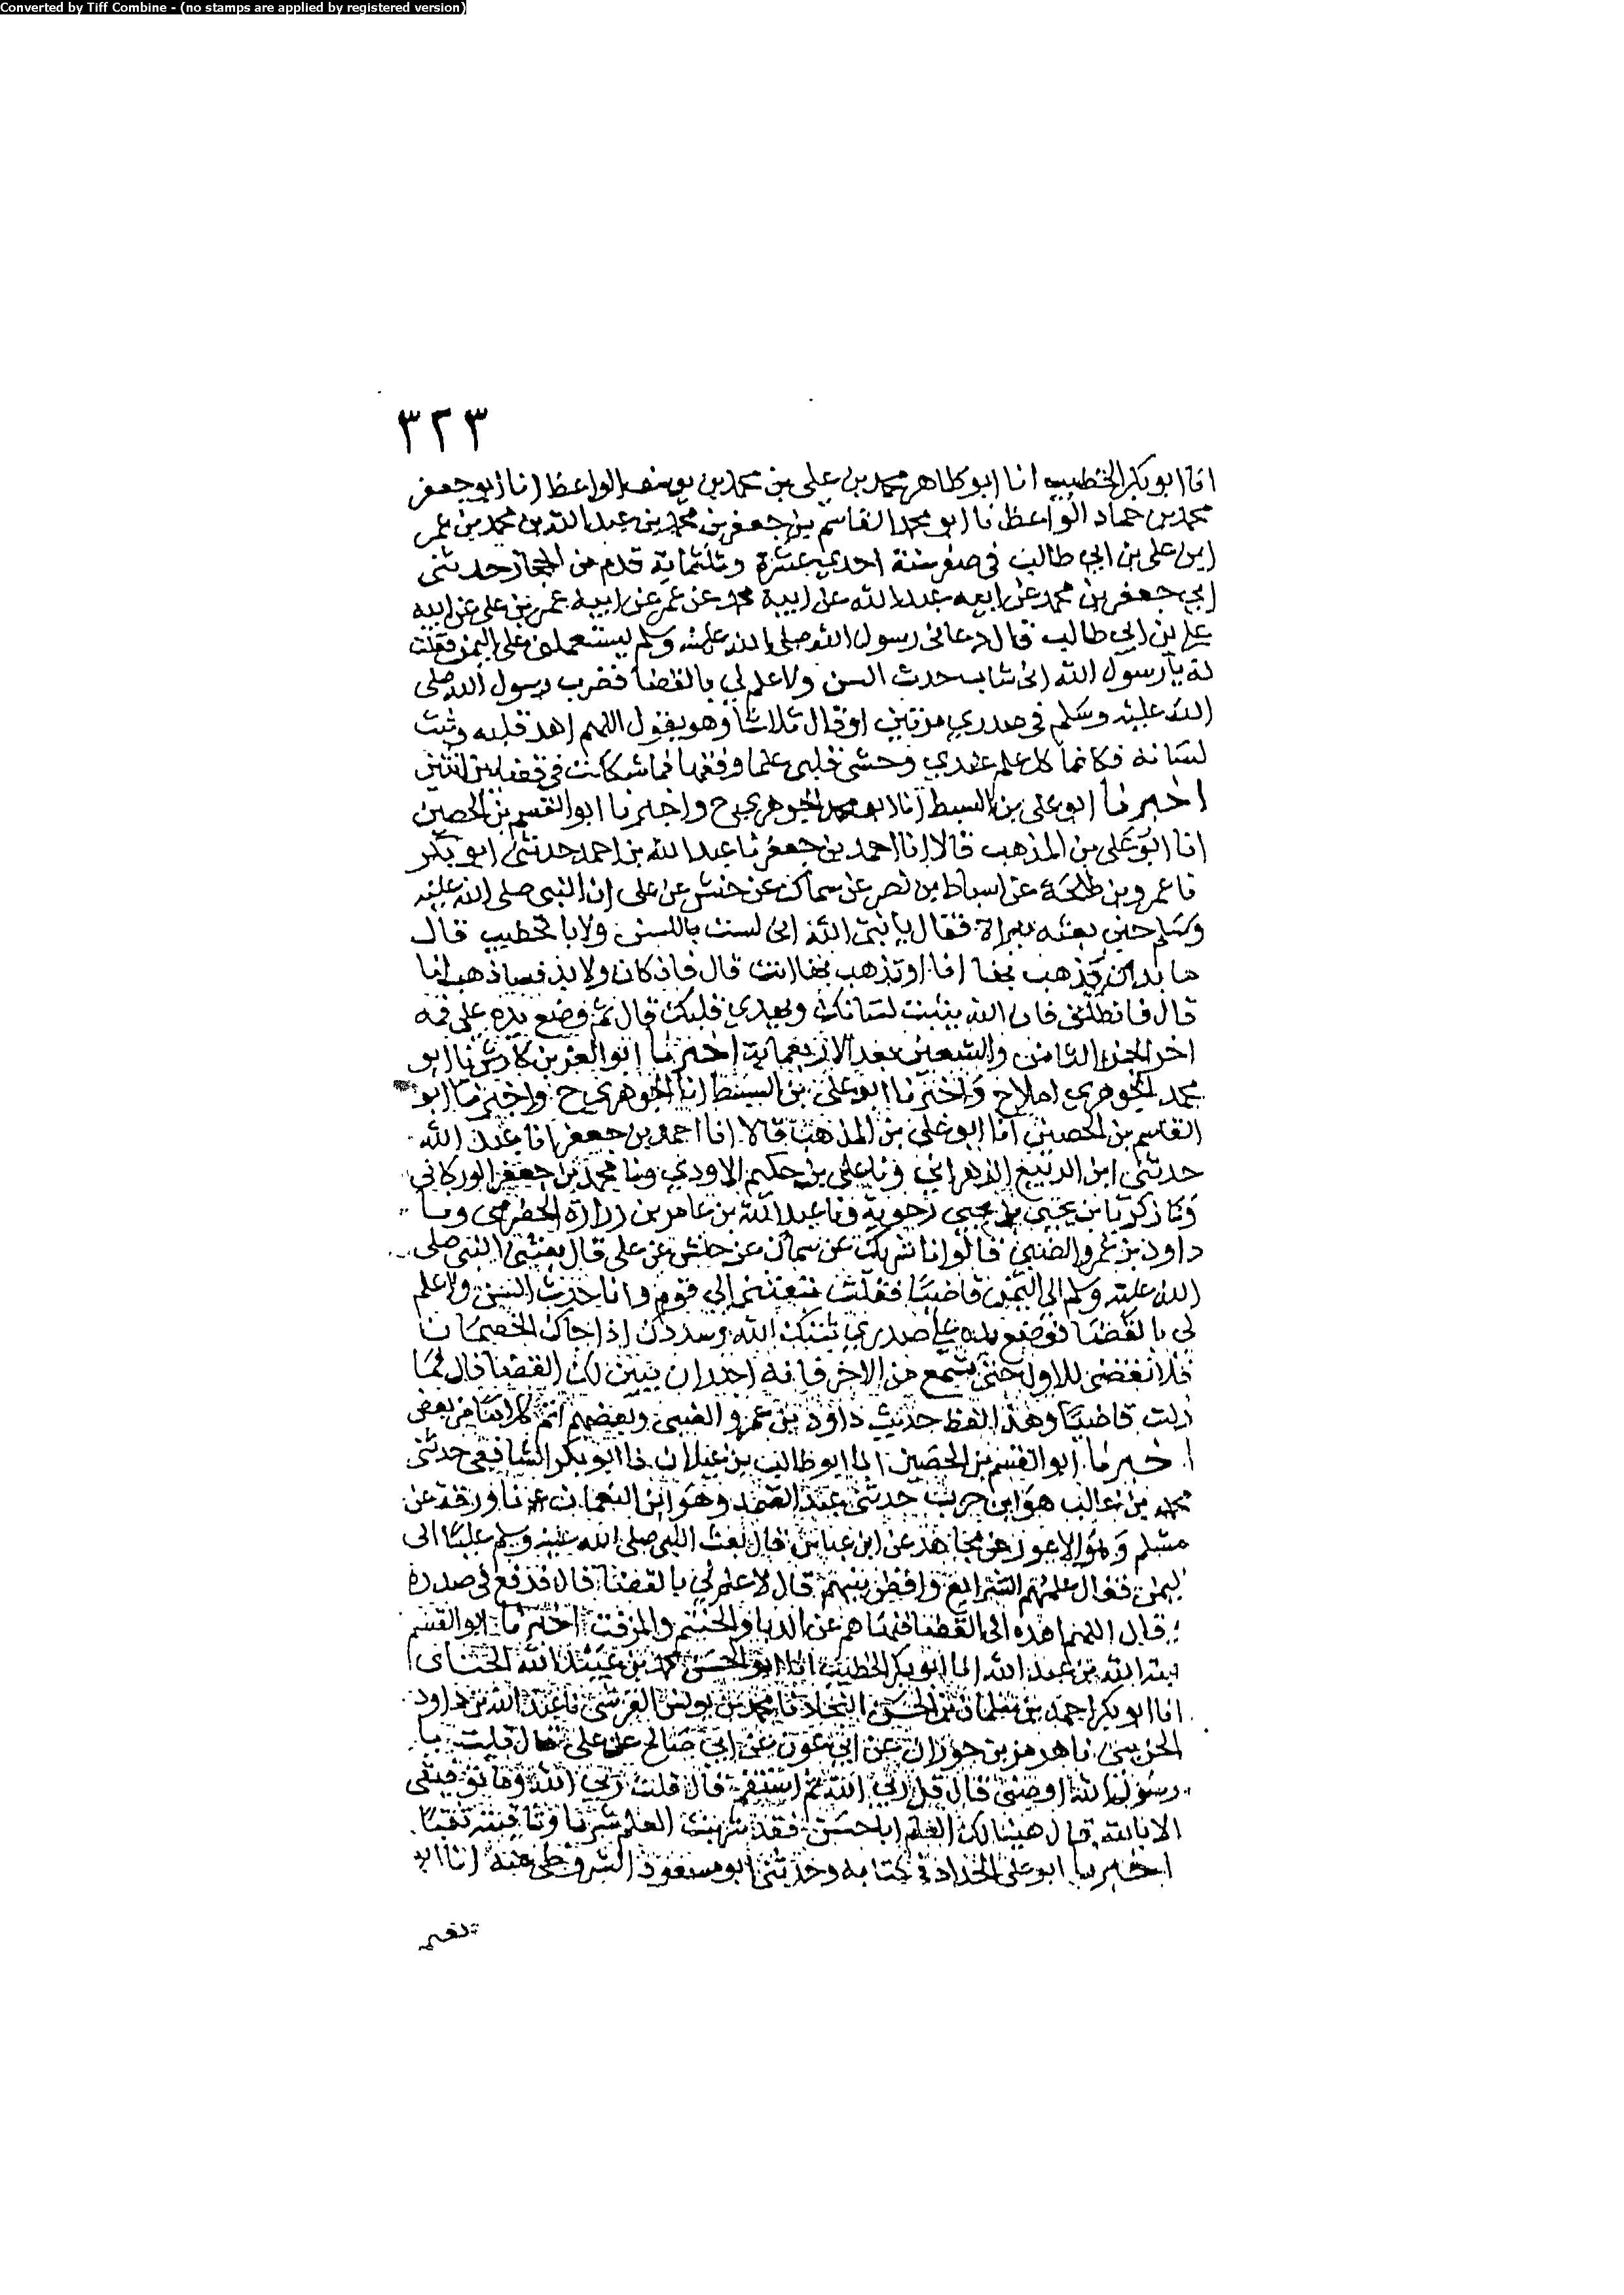 Converted by Tiff Combine - (no stamps are applied by registered version)
٣٢٣
انا ابو بكر الخطيب انا ابو طاهر محمد بن علي بن محمد بن يوسف الواعظ انا ابو جعفر
محمد بن حماد الواعظ نا ابو محمد القاسم بن جعفر بن محمد بن عبد الله بن محمد بن عمر
ابن علي بن ابي طالب في صفر سنة احدي عشرة وثلثماية قدم من الحجاز حدثني
ابي جعفر بن محمد عن ابيه عبد الله عن ابيه محمد عن عمر عن ابيه عمر بن علي عن ابيه
علي بن ابي طالب قال دعاني رسول الله صلى الله عليه وسلم ليستعملني على اليمن فقلت
له يا رسول الله اني شاب حدث السن ولا علم لي بالقضا فضرب رسول الله صلى
الله عليه وسلم في صدري مرتين او قال ثلاثا وهو يقول اللهم اهد قلبه وثبت
لسانه فكانما كل علم عندي وحشي قلبي علما وفقها فما شككت في قضا بين اثنين
اخبرنا ابو علي بن السبط انا ابو محمد الجوهري ح واخبرنا ابو القسم بن الحصين
انا ابو علي بن المذهب قالا انا احمد بن جعفر نا عبد الله بن احمد حدثني ابو بكر
نا عمرو بن طلحة عن اسباط بن نصر عن سماك عن حنش عن علي ان النبي صلى الله عليه
وسلم حين بعثه ببراة فقال يا نبي الله اني لست باللسن ولا بالخطيب قال
ما بد ان تذهب بها انا او تذهب بها انت قال فان كان ولا بد فساذهب انا
قال فانطلق فان الله يثبت لسانك ويهدي قلبك قال ثم وضع يده على فمه
اخر الجزء الثامن والتسعين بعد الاربعماية اخبرنا ابو العز بن كادش نا ابو
محمد الجوهري املا ح واخبرنا ابو علي بن السبط انا الجوهري ح واخبرنا ابو
القاسم بن الحصين انا ابو علي بن المذهب قالا انا احمد بن جعفر نا عبد الله
حدثني ابو الربيع الزهراني ونا علي بن حكيم الاودي ونا محمد بن جعفر الوركاني
ونا زكريا بن يحيى زحموية ونا عبد الله بن عامر بن زرارة الحضرمي ونا
داود بن عمرو الضبي قالوا نا شريك عن سماك عن حنش عن علي قال بعثني النبي صلى
الله عليه وسلم الى اليمن قاضيا فقلت تبعثني الى قوم وانا حدث السن ولا علم
لي بالقضا فوضع يده على صدري ثبتك الله وسددك اذا جاك الخصمان
فلا تقضى للاول حتى تسمع من الاخر فانه اجدر ان يبين لك القضا قال فما
زلت قاضيا وهذا لفظ حديث داود بن عمرو الضبي وبعضهم اتم كلاما من بعض
اخبرنا ابو القسم بن الحصين انا ابو طالب بن غيلان نا ابو بكر الشافعي حدثني
محمد بن غالب هو ابن حرب حدثني عبد الصمد وهو ابن النعمان نا ورقة عن
مسلم وهو الاعور عن مجاهد عن ابن عباس قال بعث النبي صلى الله عليه وسلم عليا الى
اليمن فقال علمهم الشرايع واقض بينهم قال لا علم لي بالقضا قال فدفع في صدره
وقال اللهم اهده الى القضا فنهاهم عن الدبا والحنتم والمزفت اخبرنا ابو القسم
هبة الله بن عبد الله انا ابو بكر الخطيب انا ابو الحسن محمد بن عبيد الله الحنائى
انا ابو بكر احمد بن سلمان بن الحسن النجاد نا محمد بن يونس القرشي نا عبد الله بن داود
الخريبي نا هرمز بن حوران عن ابي عون عن ابي صالح عن علي قال قلت يا
رسول الله اوصني قال قل ربي الله ثم استقم قال قلت ربي الله وما توفيقي
الا بالله قال هنيا لك العلم ابا حسن فقد شربت العلم شربا وثاقبته ثقبا
اخبرنا ابو علي الحداد في كتابه وحدثني ابو مسعود الشروطي عنه انا ابو
نعيم